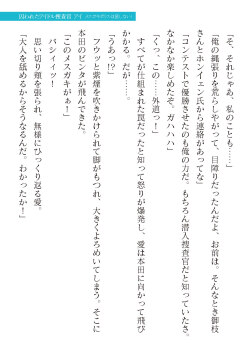 囚われたアイドル捜査官 アイ
「そ、それじゃあ、私のことも……」
「俺の縄張りを荒らしやがって、目障りだったんだよ、お前は。そんなとき御枝
さんとホンイェン氏から連絡があってな」
「コンテストで優勝させたのも俺の力だ。もちろん潜入捜査官だと知っていたさ。
なかなか楽しめたぞ、ガハハハ」
「くっ、この……外道っ！」
すべてが仕組まれた罠だったと知って怒りが爆発し、愛は本田に向かって飛び
かかる。だが……。
「うあっ!?」
フウッと紫煙を吹きかけられて脚がもつれ、大きくよろめいてしまう。そこに
本田のビンタが飛んできた。
「このメスガキがぁ！」
バシイィッ！
思い切り頬を張られ、無様にひっくり返る愛。
「大人を舐めるからそうなるんだ。わかったか！」